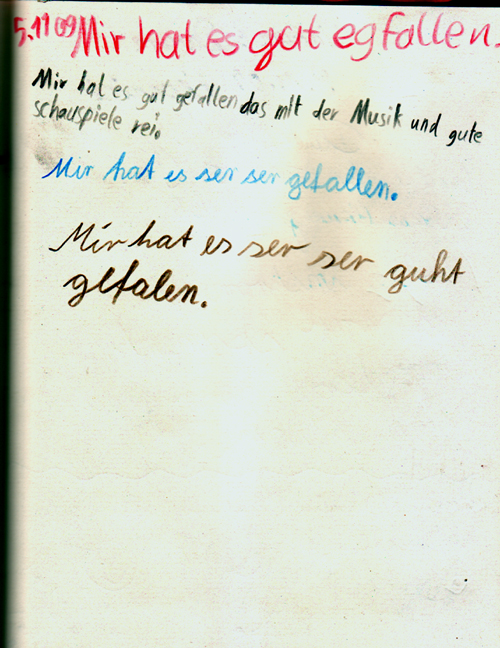 5.11 09 Mir hat es gut egfallen.
Mir hat es gut gefallen das mit der Musik und gute
schauspiele rei.
Mir hat es ser ser gefallen.
Mir hat es ser ser guht
gefalen.